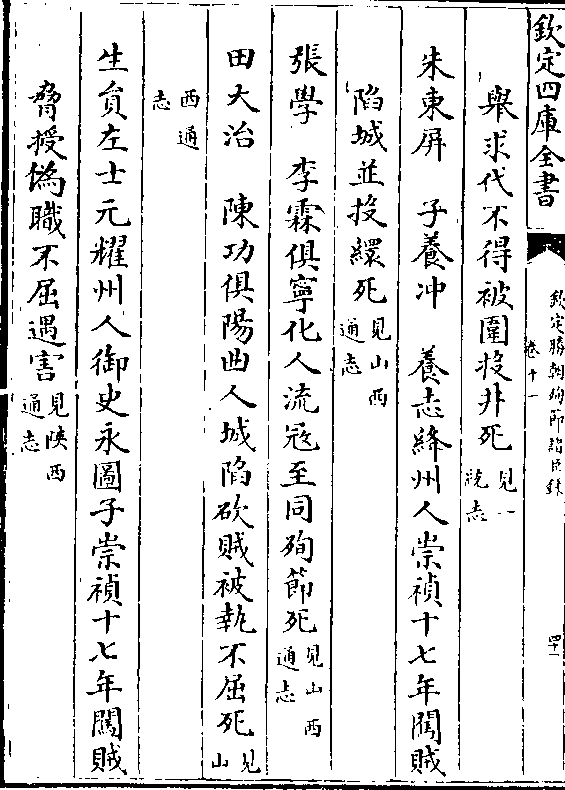 欽定四庫全書
欽定勝朝殉節諸臣錄
卷十一
四十一
舉求代不得被圍投井死見一統志
朱東屏　子養冲　養志絳州人崇禎十七年闖賊
陷城並投繯死見山西通志
張學　李霖俱寧化人流寇至同殉節死見山西通志
田大治　陳功俱陽曲人城陷砍賊被執不屈死見山
西通志
生員左士元耀州人御史永圖子崇禎十七年闖賊
脅授偽職不屈遇害見陝西通志